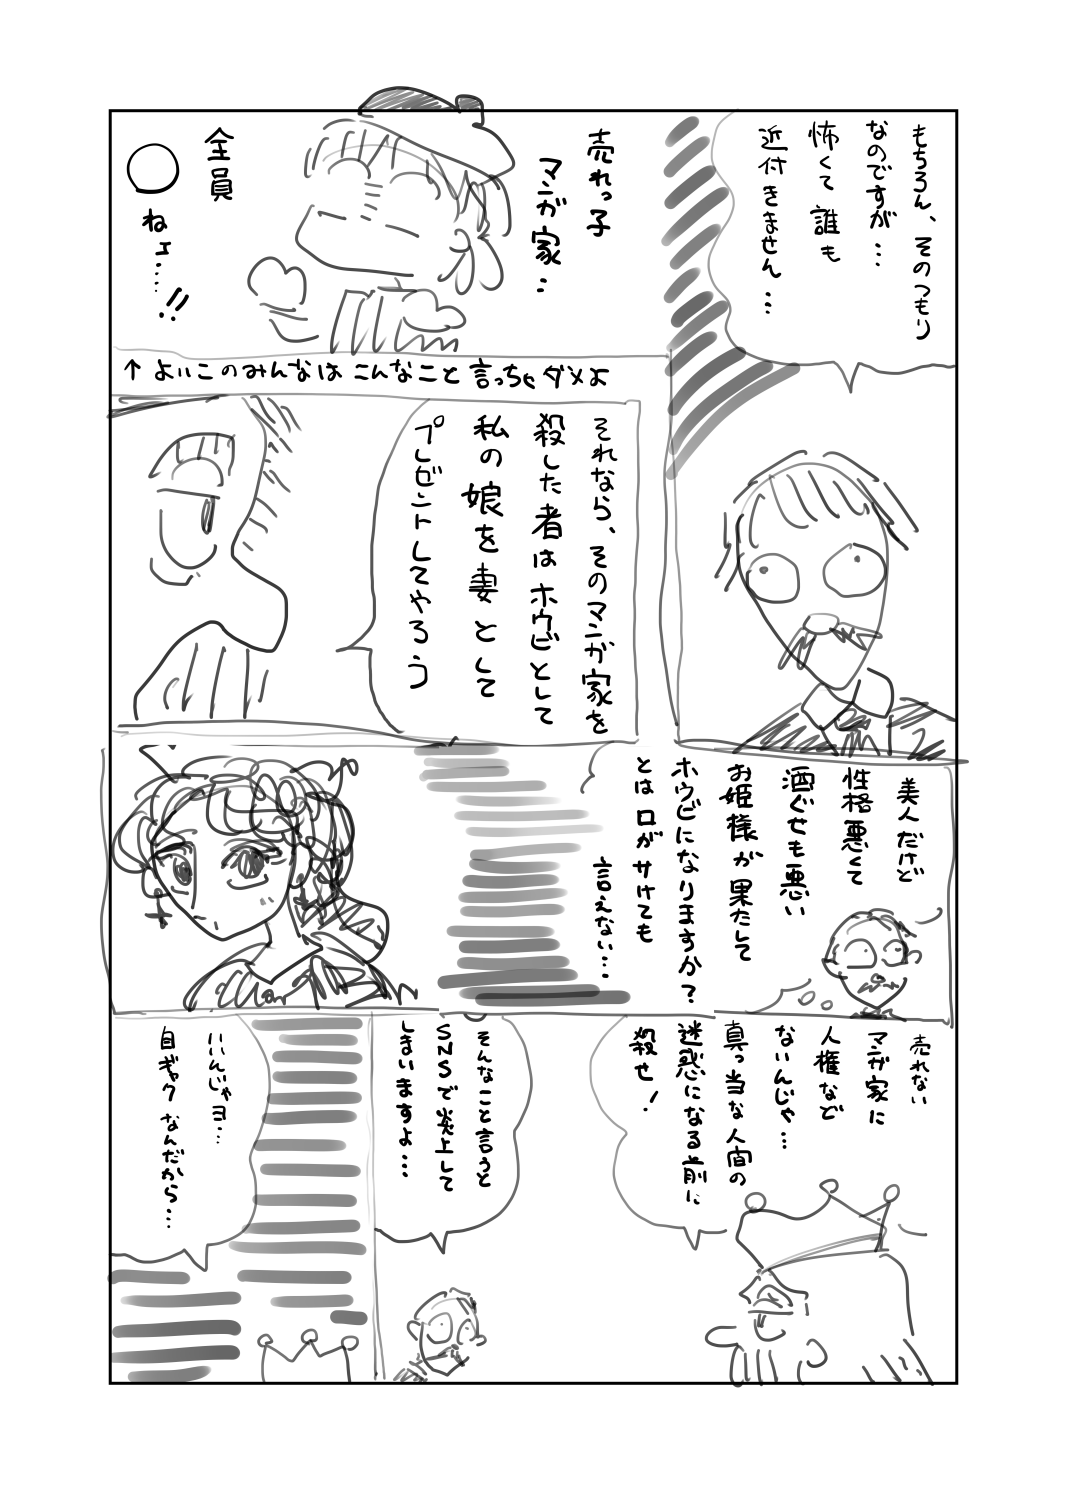 もちろん、そのつもり
なのですが…
怖くて誰も
近付きません…
売れっ子
マンガ家…
全員
○ねェ…!!
↑よいこのみんなはこんなこと言っちゃダメよ
それなら、そのマンガ家を
殺した者はホウビとして
私の娘を妻として
プレゼントしてやろう
美人だけど
性格悪くて
酒ぐせも悪い
お姫様が果たして
ホウビになりますか?
とは口がサけても
言えない…
売れない
マンガ家に
人権など
ないんじゃ…
真っ当な人間の
迷惑になる前に
殺せ!
そんなこと言うと
SNSで炎上して
しまいますよ…
いいんじゃヨ…
自ギャクなんだから…